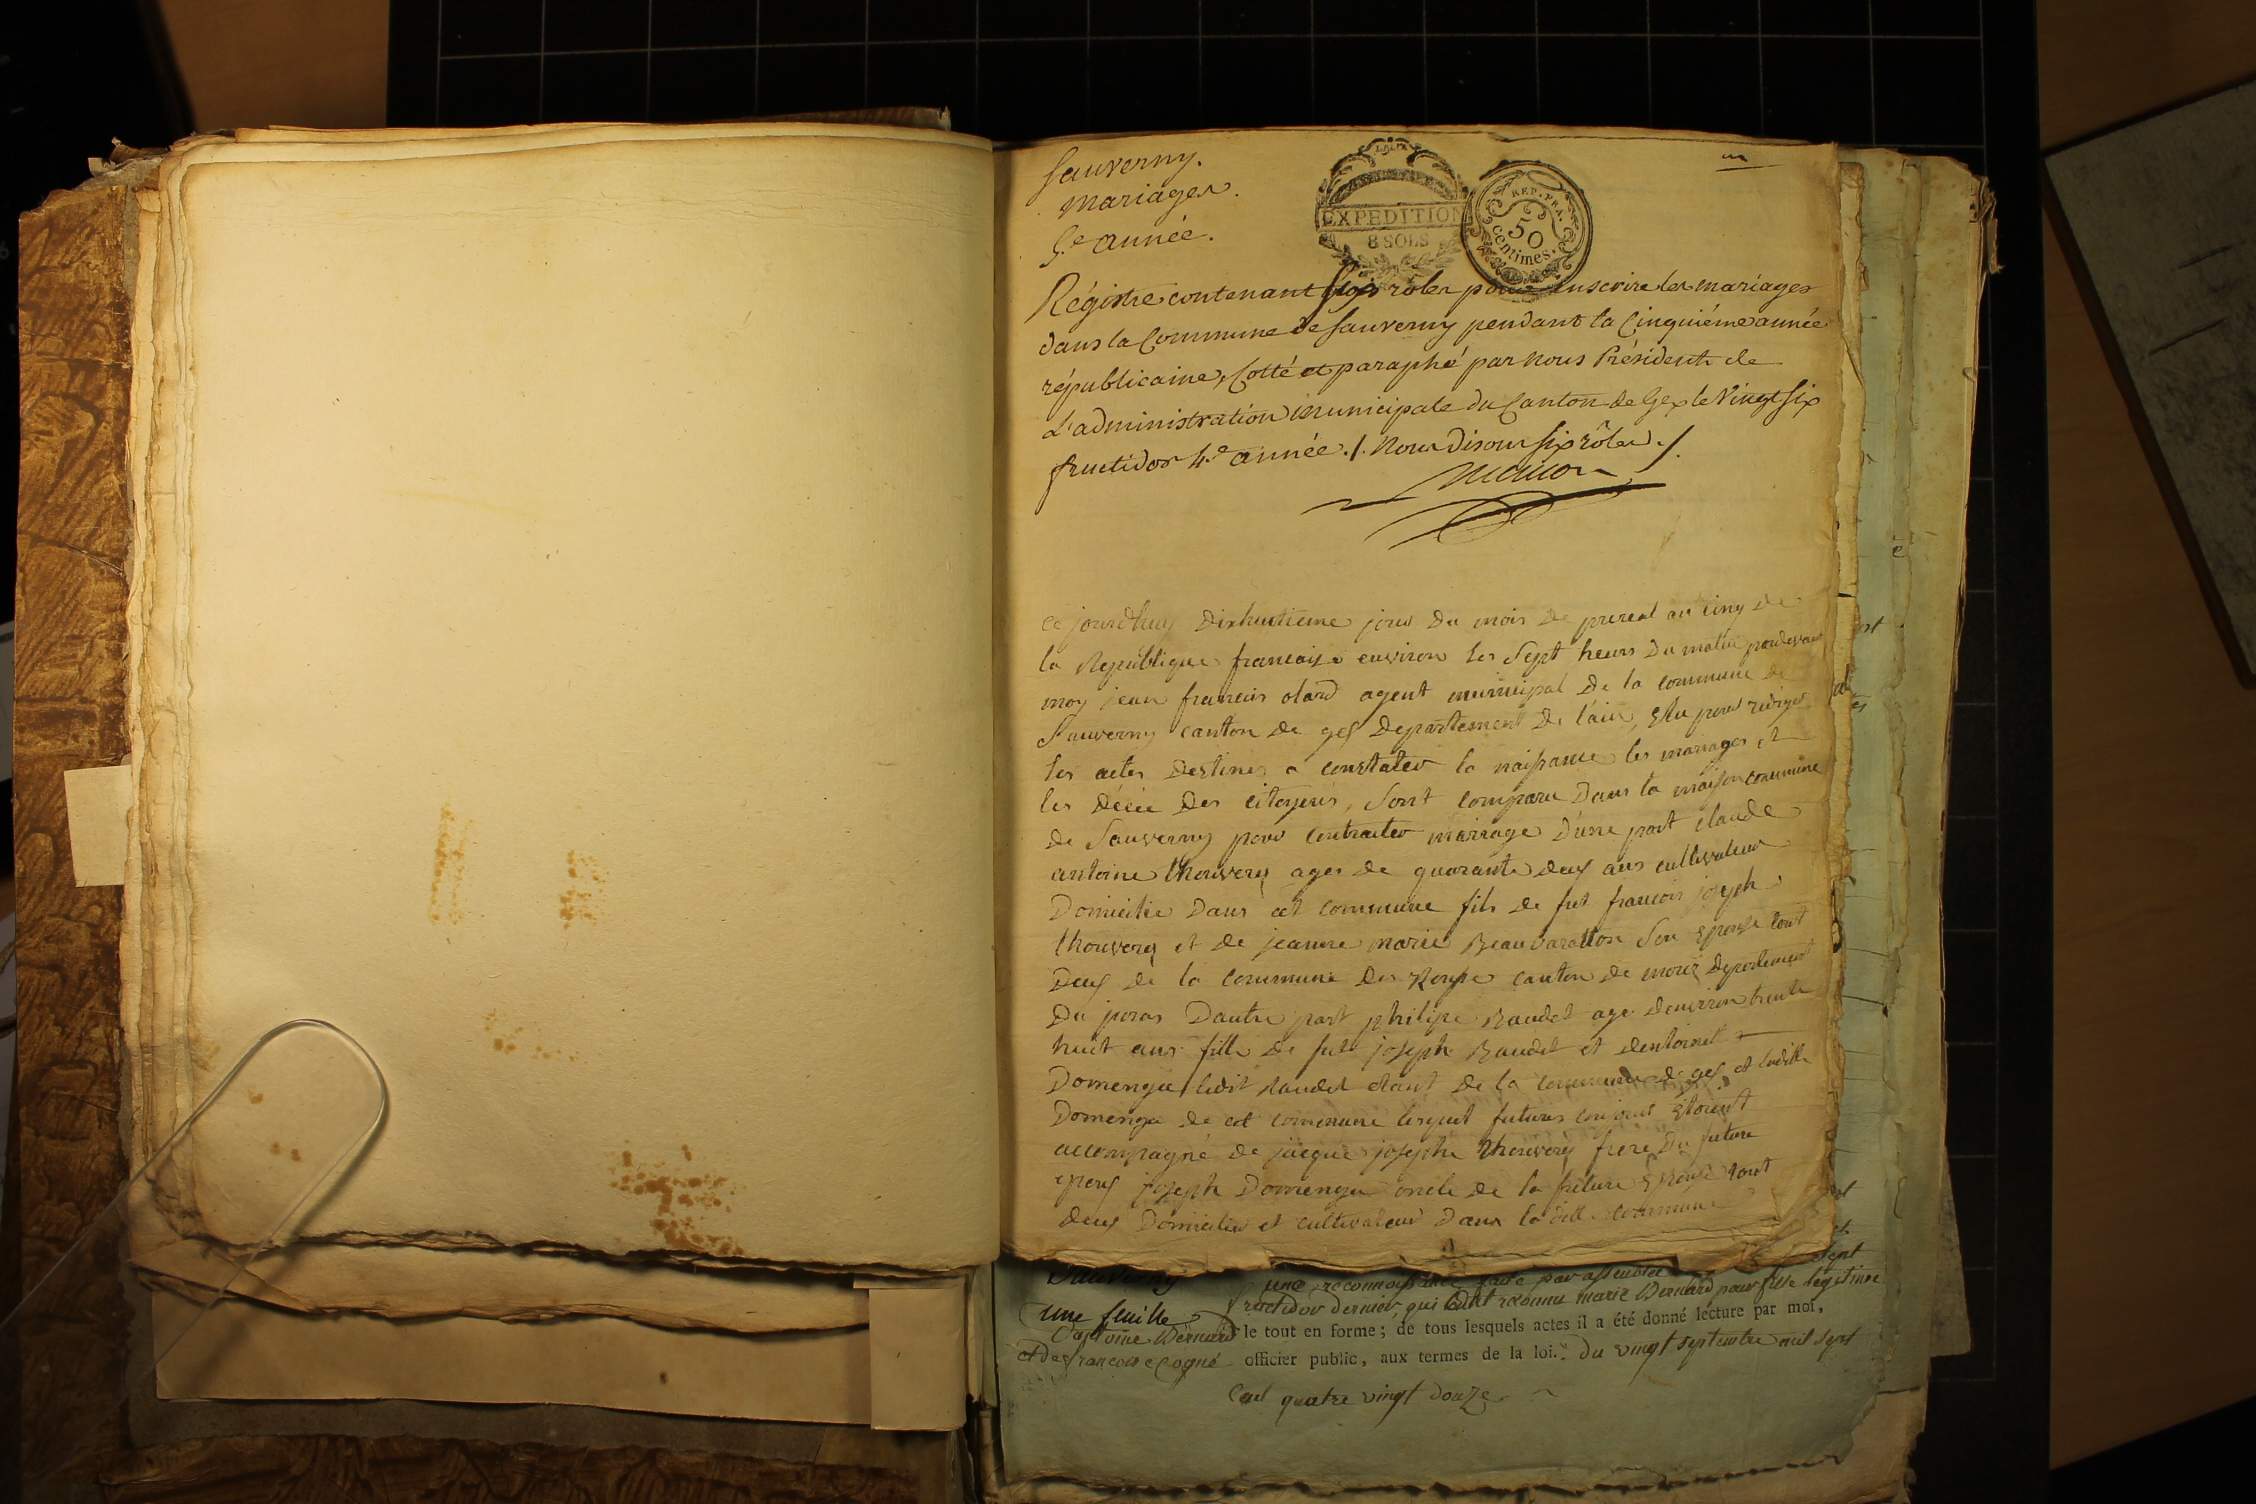 Sauverny.
mariages.
5.e année.
EXPEDITION
8 SOLS
REP. FRA.
50
centimes.
Régistre contenant six rôles pour inscrire les mariages
dans la Commune de Sauverny pendant la Cinquiéme année
républicaine, Cotté et paraphé par nous Président de
L'administration municipale du Canton de Gex le Vingt six
fructidor 4.e année ./. nous disons six rôles ./.
ce jourdhuy dixhuitieme jour du mois de prereal an cinq de
la Republique francaise environ les Sept heurs du matin pardevant
moy jean francois olard agent municipal de la commune de
Sauverny canton de gex departement de l'ain, Elu pour rediger
les actes destines a constater la naissance les mariages et
les décée des citoyens, sont comparu dans la maison commune
de Sauverny pour contracter mariage d'une part claude
antoine thouverey ages de quarante deux ans cultivateur
domicilie dans cet commune fils de fut francois joseph
thouverey et de jeanne marie son Epouse tout
deux de la commune des Rousse canton de morez departement
du juras d'autre part philipe Baudet age denviron trente
huit ans fille de fut joseph Baudet et dentoinet
Domenga ledit Baudet etant de la commune de gex et ladille
Domenga de cet commune lesquel futurs conjoins Etoient
accompagné de jacque joseph thouverey frere du future
epoux joseph Domenga oncle de la future Epouse tout
deux domicilie et cultivateur dans la dite commune
Sauverny
une feuille
Antoine Bernard
et de francoise Cogné
une reconnoissance faite par assemblée
fructidor dernier, qui ont reconnu marie Bernard pour fille légitime
le tout en forme; de tous lesquels actes il a été donné lecture par moi,
officier public, aux termes de la loi. du vingt septembre mil sept
Cent quatre vingt douze